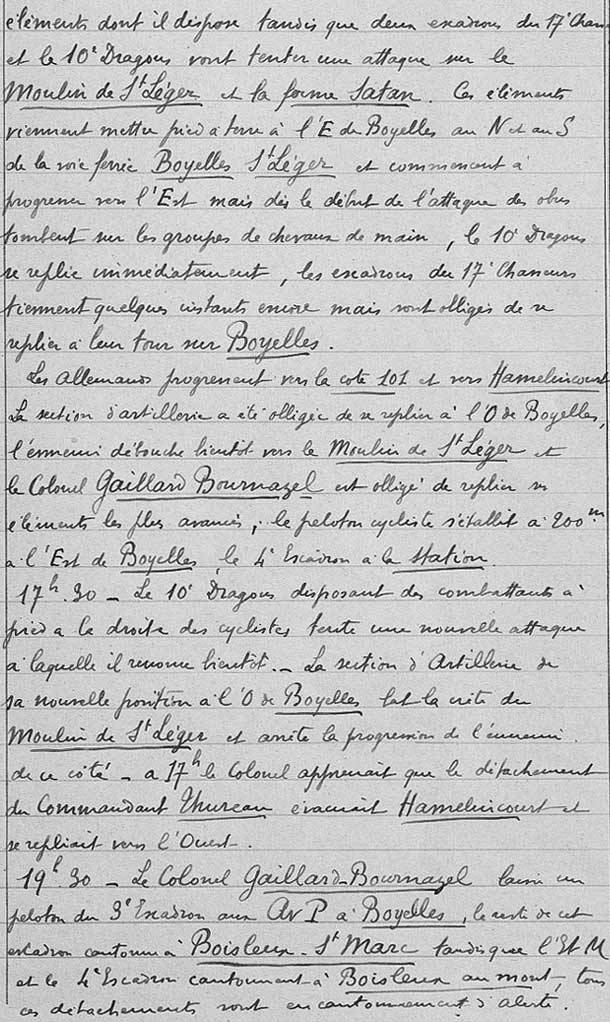 éléments dont il dispose tandis que deux escadrons du 17e Chass
et le 10e Dragons vont tenter une attaque sur le
Moulin de St Léger et la ferme Satan. Ces éléments
viennent mettre pied à terre à l'E de Boyelles au N et au S
de la voie ferrée Boyelles St Léger et commencent à
progresser vers l'Est mais dès le début de l'attaque des obus
tombent sur les groupes de chevaux de main, le 10e Dragons
se replie immédiatement, les escadrons du 17e Chasseurs
tiennent quelques instants encore mais sont obligés de se
replier à leur tour sur Boyelles.
Les Allemands progressent vers la cote 101 et vers Hamelincourt
La section d'artillerie a été obligée de se replier à l'O de Boyelles,
l'ennemi débouche bientôt vers le Moulin de St Léger et
le Colonel Gaillard Bournazel est obligé de replier ses
éléments les plus avancés, le peloton cycliste s'établit à 200m.
à l'Est de Boyelles, le 4e Escadron à la station.
17h.30 - Le 10e Dragons disposant des combattants à
pied à la droite des cyclistes tente une nouvelle attaque
à laquelle il renonce bientôt. - La section d'Artillerie de
sa nouvelle position à l'O de Boyelles bat la crête du
Moulin de St Léger et arrête la progression de l'ennemi
de ce côté - à 17h le Colonel apprenait que le détachement
du Commandant Thureau évacuait Hamelincourt et
se repliait vers l'Ouest.
19h.30 - Le Colonel Gaillard-Bournazel laisse un
peloton du 3e Escadron aux Av P à Boyelles, le reste de cet
escadron cantonne à Boisleux-St Marc tandis que l'Et M
et le 4e Escadron cantonnent à Boisleux au mont, tous
ces détachements sont en cantonnement d'alerte.